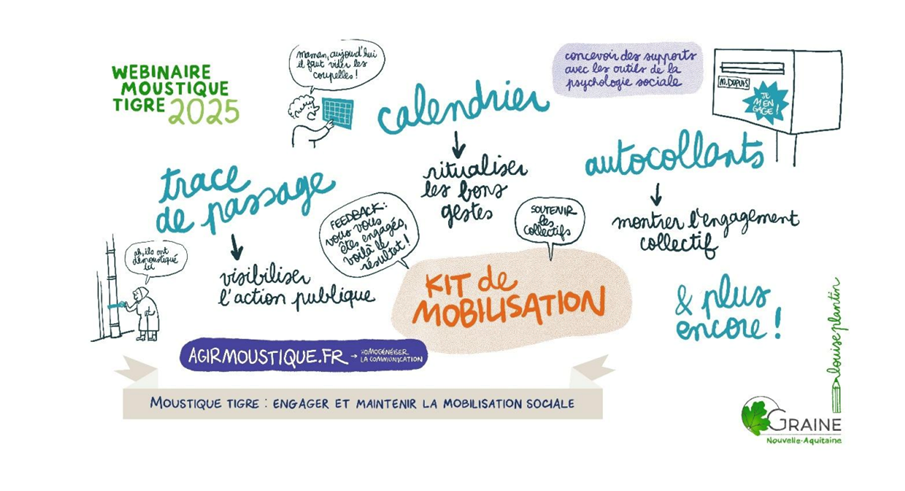 WEBINAIRE
MOUSTIQUE
TIGRE 2025
maman, aujourd'hui
il faut vider les
coupelles !
calendrier
ritualiser
les bons
gestes
concevoir des supports
avec les outils de la
psychologie sociale
M. DUPUIS
JE
M'EN
GAGE !
autocollants
montrer l'engagement
collectif
trace
de passage
ah, ils ont
démoustiqué
ici
visibiliser
l'action publique
FEEDBACK :
vous vous
êtes engagés,
voilà le
résultat !
SOUTENIR
les
collectifs
KIT de
MOBILISATION
& plus
encore !
AGIRMOUSTIQUE.FR → HOMOGÉNÉISER
LA COMMUNICATION
MOUSTIQUE TIGRE : ENGAGER ET MAINTENIR LA MOBILISATION SOCIALE
louise plantin
GRAINE
Nouvelle-Aquitaine